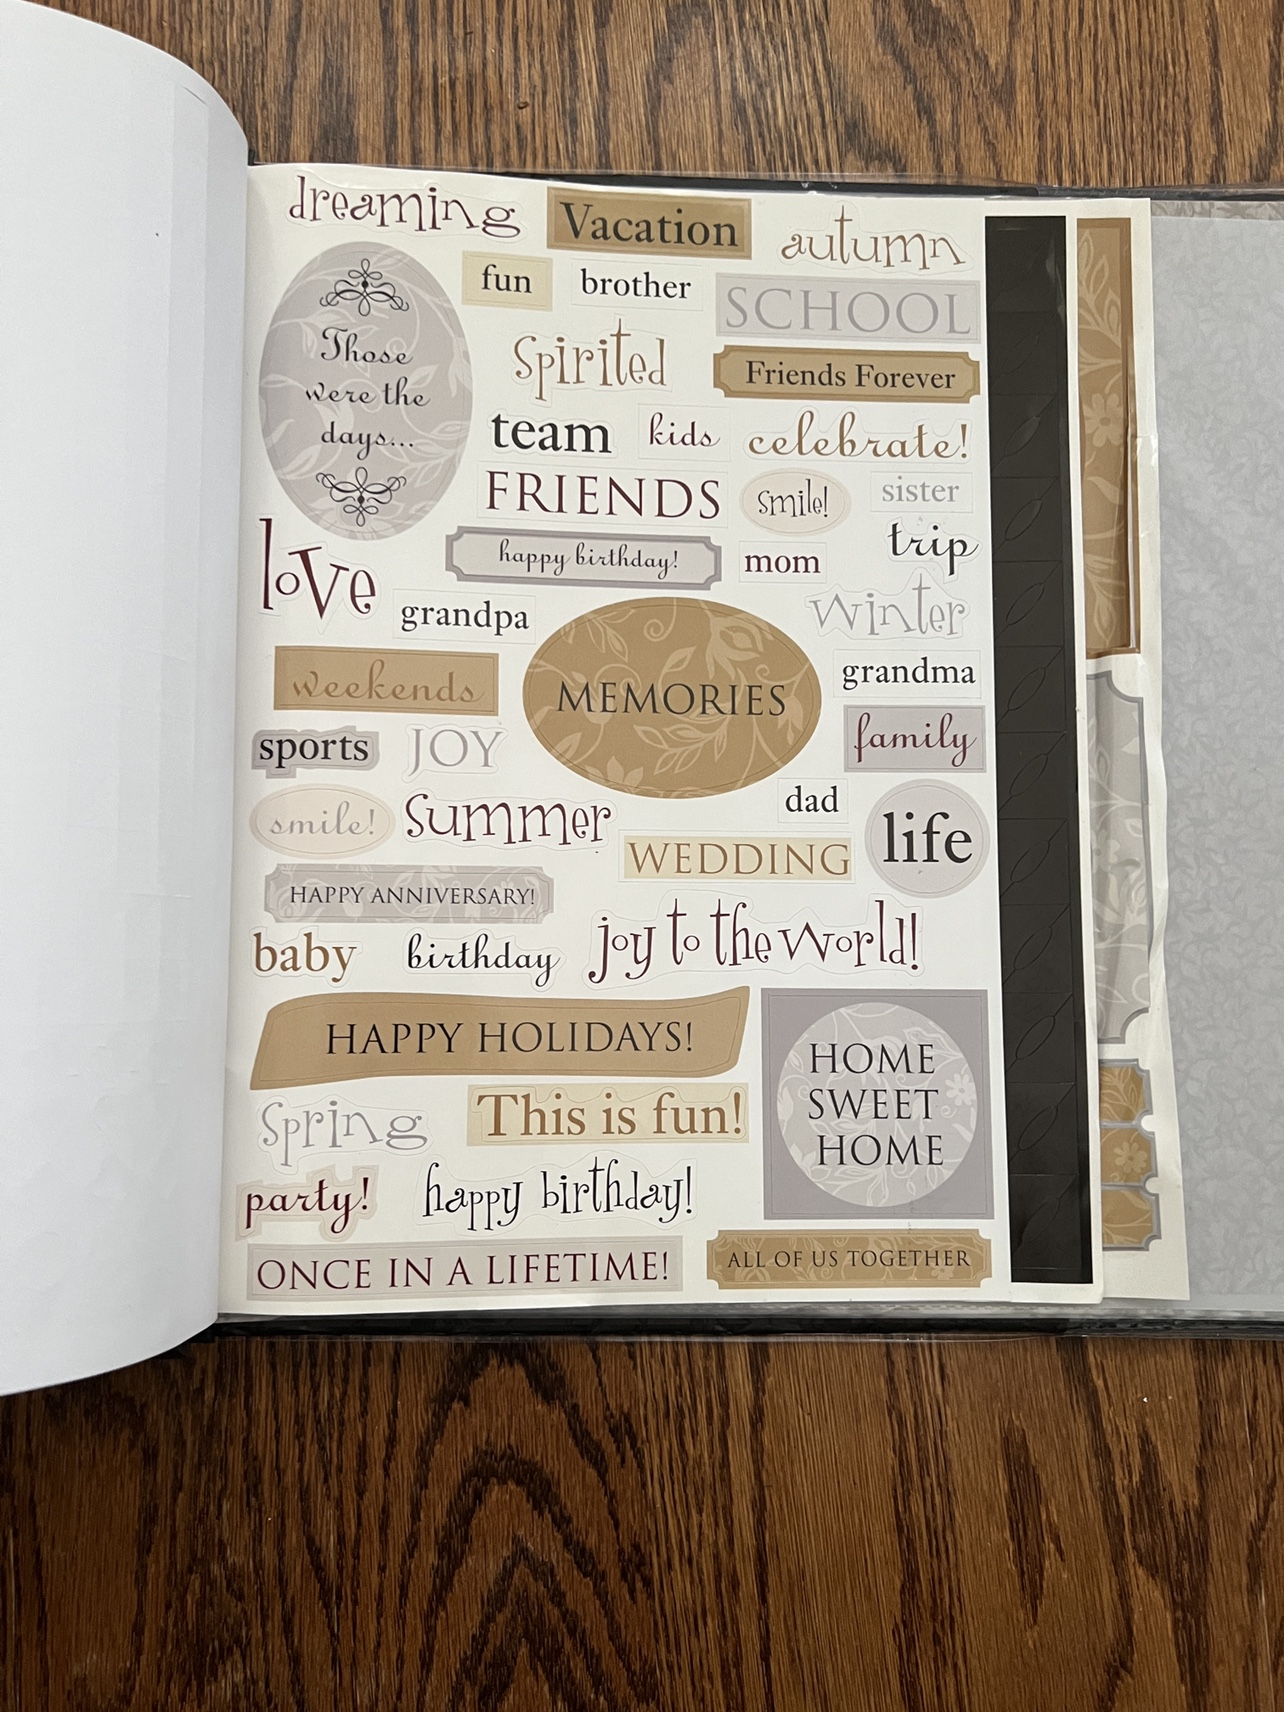 dreaming
Vacation
autumn
fun
brother
SCHOOL
Those
were the
days...
Spirited
Friends Forever
team
kids
celebrate!
FRIENDS
smile!
sister
love
happy birthday!
mom
trip
grandpa
winter
weekends
MEMORIES
grandma
sports
JOY
family
smile!
summer
dad
life
WEDDING
HAPPY ANNIVERSARY!
baby
birthday
joy to the world!
HAPPY HOLIDAYS!
HOME
SWEET
HOME
Spring
This is fun!
party!
happy birthday!
ONCE IN A LIFETIME!
ALL OF US TOGETHER